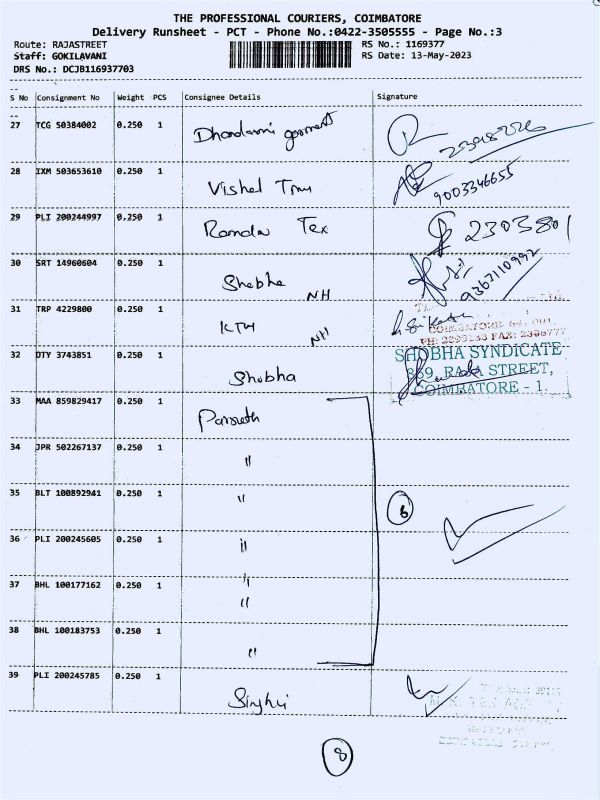 THE PROFESSIONAL COURIERS, COIMBATORE
Delivery Runsheet - PCT - Phone No.:0422-3505555 - Page No.:3
Route: RAJASTREET RS No.: 1169377
Staff: GOKILAVANI RS Date: 13-May-2023
DRS No.: DCJB116937703
S No Consignment No Weight PCS Consignee Details Signature
27 TCG 50384002 0.250 1
28 IXM 503653610 0.250 1 Vishal
9003346655
29 PLI 200244997 0.250 1 Tex 2303801
30 SRT 14960604 0.250 1 Shobha NH
9363110992
31 TRP 4229800 0.250 1 KTM NH
32 OTY 3743851 0.250 1 Shobha
SHOBHA SYNDICATE
859, RAJA STREET,
COIMBATORE - 1.
33 MAA 859829417 0.250 1
34 JPR 502267137 0.250 1 "
35 BLT 100892941 0.250 1 "
6
36 PLI 200245605 0.250 1 "
37 BHL 100177162 0.250 1 "
"
38 BHL 100183753 0.250 1 "
39 PLI 200245785 0.250 1 Singhvi
8